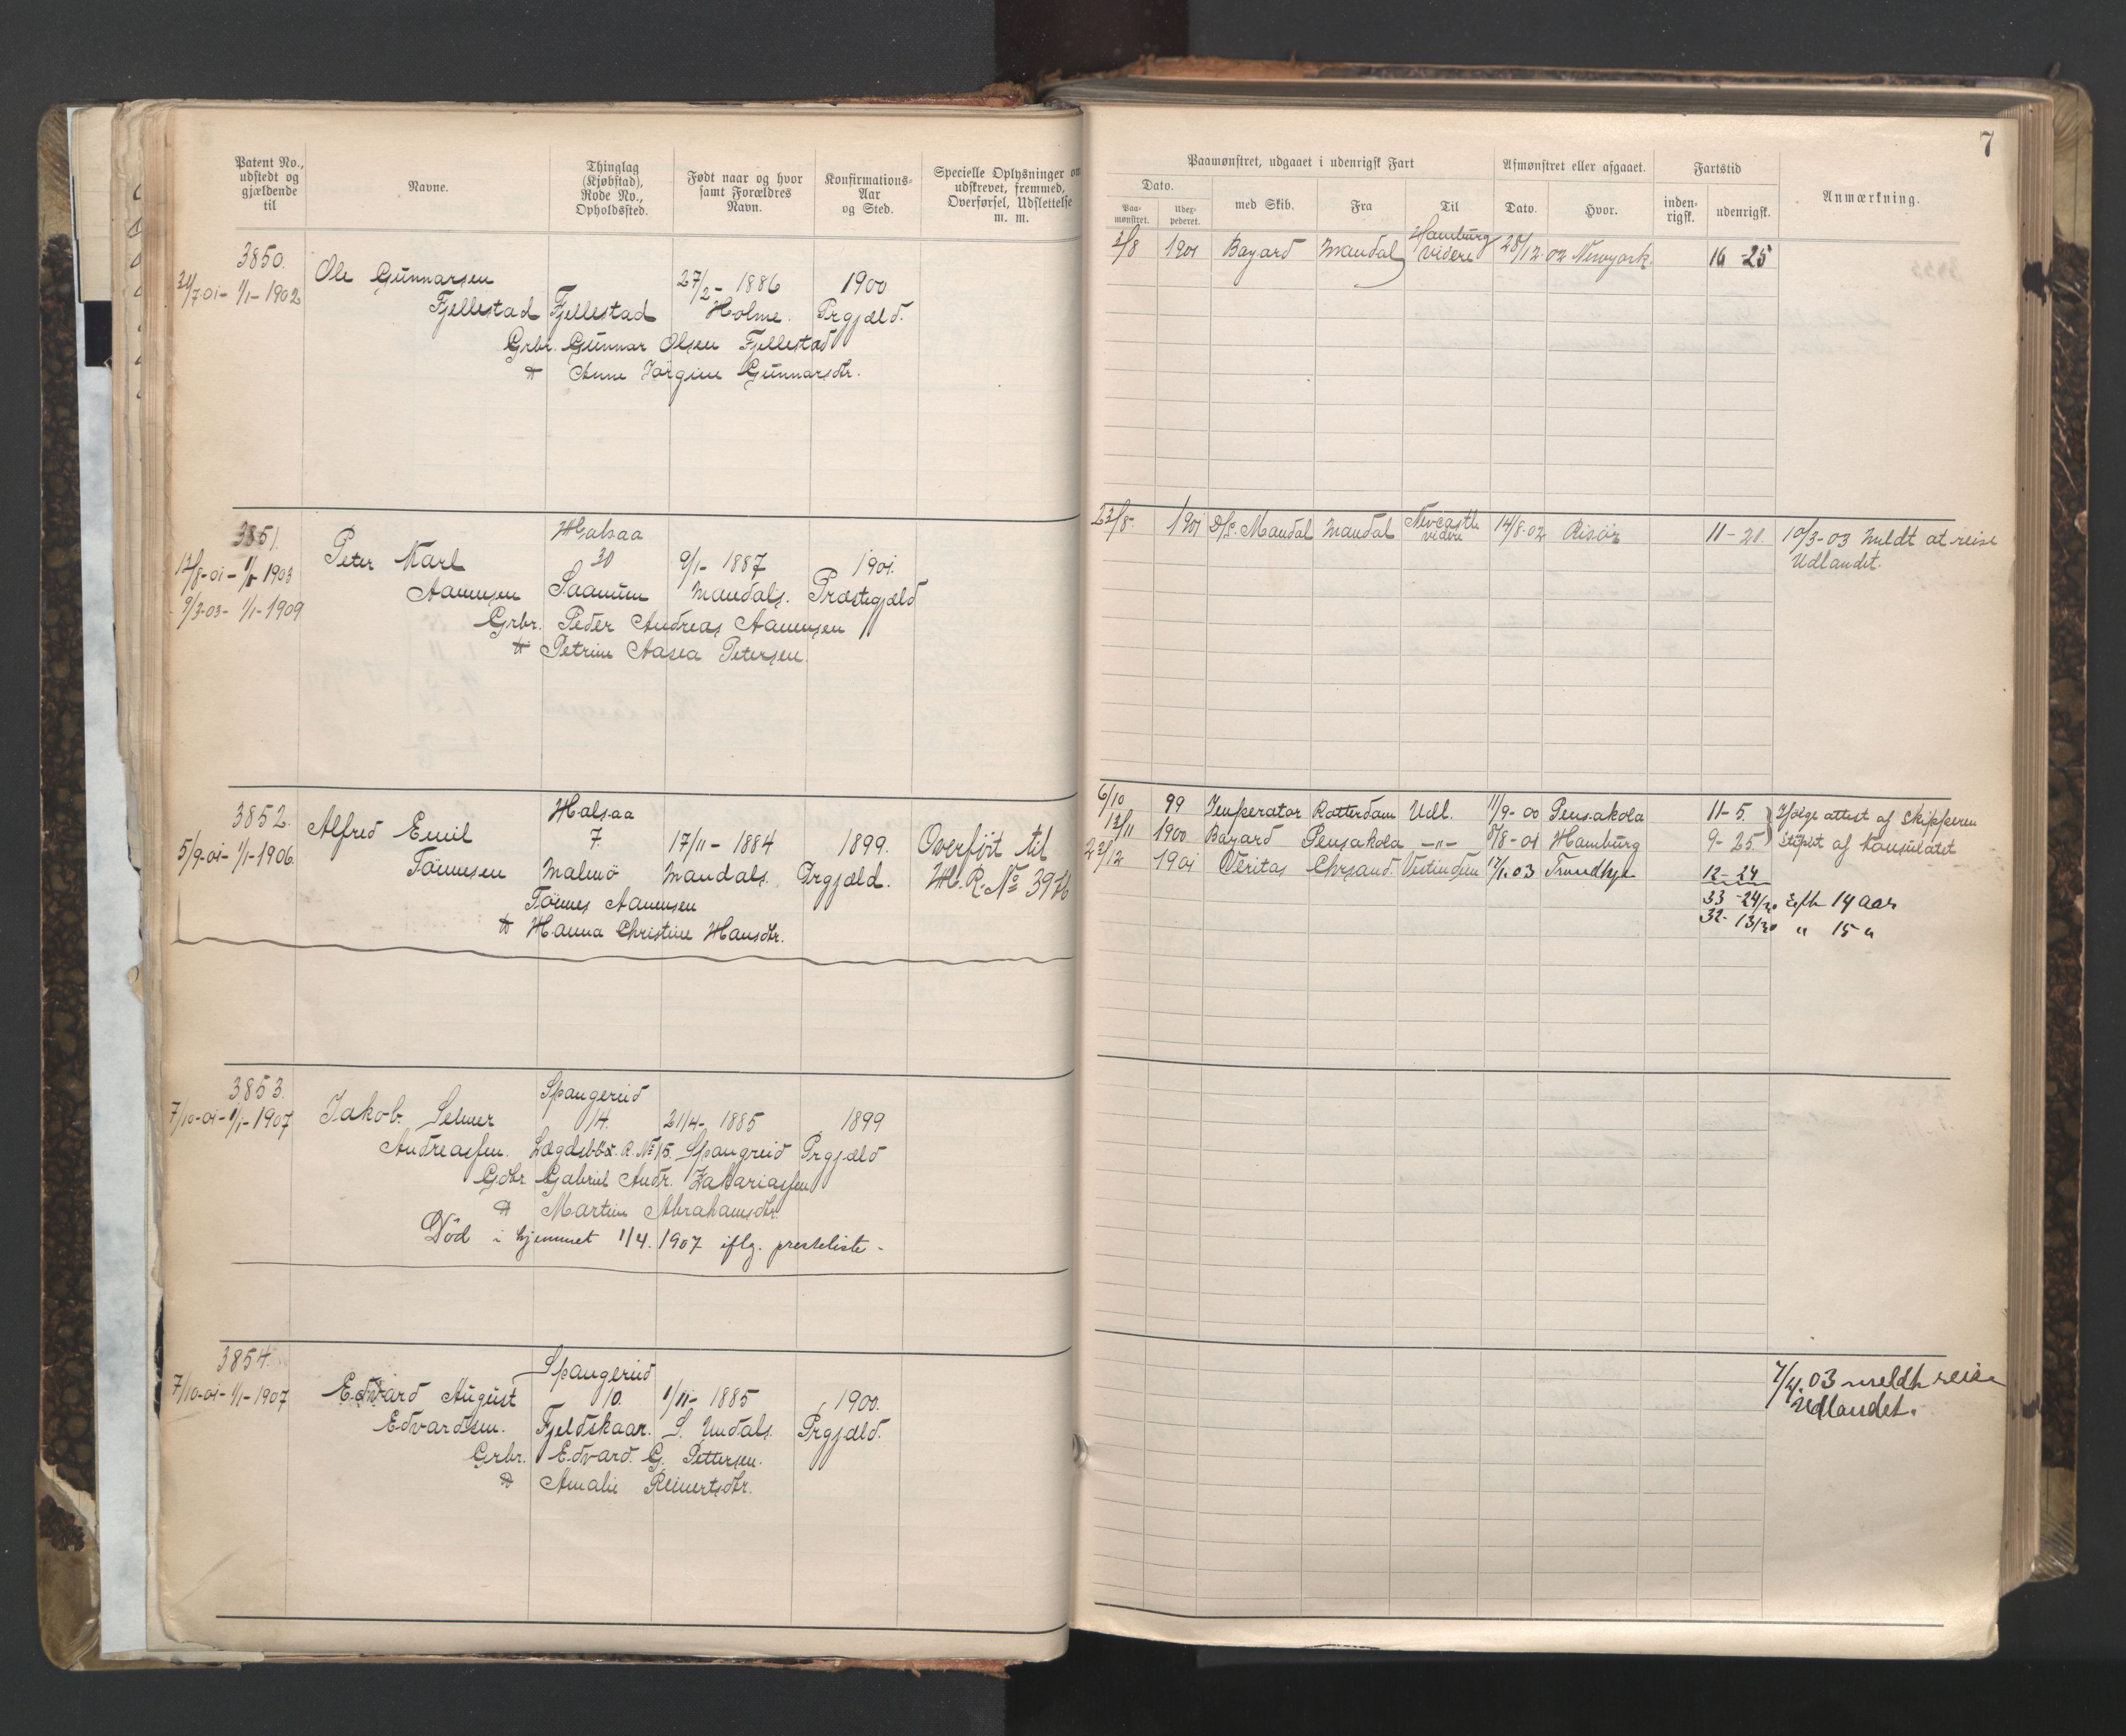 Patent No.,
udstedt og
gjældende
til
Navne.
Thinglag
(Kjøbstad),
Rode No.,
Opholdssted.
Født naar og hvor
samt Forældres
Navn.
Konfirmations-
Aar
og Sted.
Specielle Oplysninger om
udskrevet, fremmed,
Overførsel, Udslettelse
m. m.
3850.
24/7-01- 1/1- 1902
Ole Gunnarsen
27/2- 1886
1900
Fjellestad Fjellestad Holme. Prgjæld.
Grbr. Gunnar Olsen Fjellestad
& Anne Jørgine Gunnarsdtr.
3851.
12/8-01- 1/1 1903
9/3-03- 1/1-1909
Halsaa
Peter Karl 30 9/1- 1887 1901.
Aanensen Saanum Mandals. Præstegjæld
Grbr. Peder Andreas Aanensen
& Petrine Aasea Petersen.
3852.
5/9-01- 1/1-1906.
Halsaa
Alfred Emil 7. 17/11- 1884 1899. Overført til
Tønnesen Malmö Mandals. Prgjæld. H.R. No 3976
Tønnes Aanensen
& Hanna Christine Hansdtr.
3853.
7/10-01- 1/1-1907
Spangereid
Jakob Selmer 14. 21/4- 1885 1899
Andreassen. Lægdsböx. R. No 15. Spangreid Prgjæld
Gdbr. Gabriel Andr. Zakariassen
& Martine Abrahamsdtr.
Död i hjemmet 1/4. 1907 iflg. presteliste.
3854.
7/10-01- 1/1-1907
Spangereid
Edvard August 10. 1/11- 1885 1900.
Edvardsen. Fjeldskaar. S. Undals. Prgjæld.
Grbr. Edvard. G. Pettersen.
& Amalie Reinertsdtr.
7
Paamønstret, udgaaet i udenrigsk Fart
Afmønstret eller afgaaet.
Fartstid
Anmærkning.
Dato.
Paa-
mønstret.
Udex-
pederet.
med Skib.
Fra
Til
Dato.
Hvor.
inden-
rigsk.
udenrigsk.
2/8 1901 Bayard Mandal Hamburg videre 28/12.02 Newyork. 16-25
23/8- 1901 D/S. Mandal Mandal Newcastle videre 14/8.02 Risör 11-21. 10/3-03 Meldt at reise
Udlandet.
6/10 99 Imperator Rotterdam Udl. 11/9-00 Pensakola 11-5. Ifølge attest af skipperen
12/11 1900 Bayard Pensakola -"- 5/8-01 Hamburg 9-25 støpet af konsulatet
23/12 1901 Veritas Chrsand. Vestindien 17/1.03 Trondhj. 12-24
33-24/30 Eft. 14 aar
32-13/30 " 15 "
7/4.03 meldt reise
Udlandet.